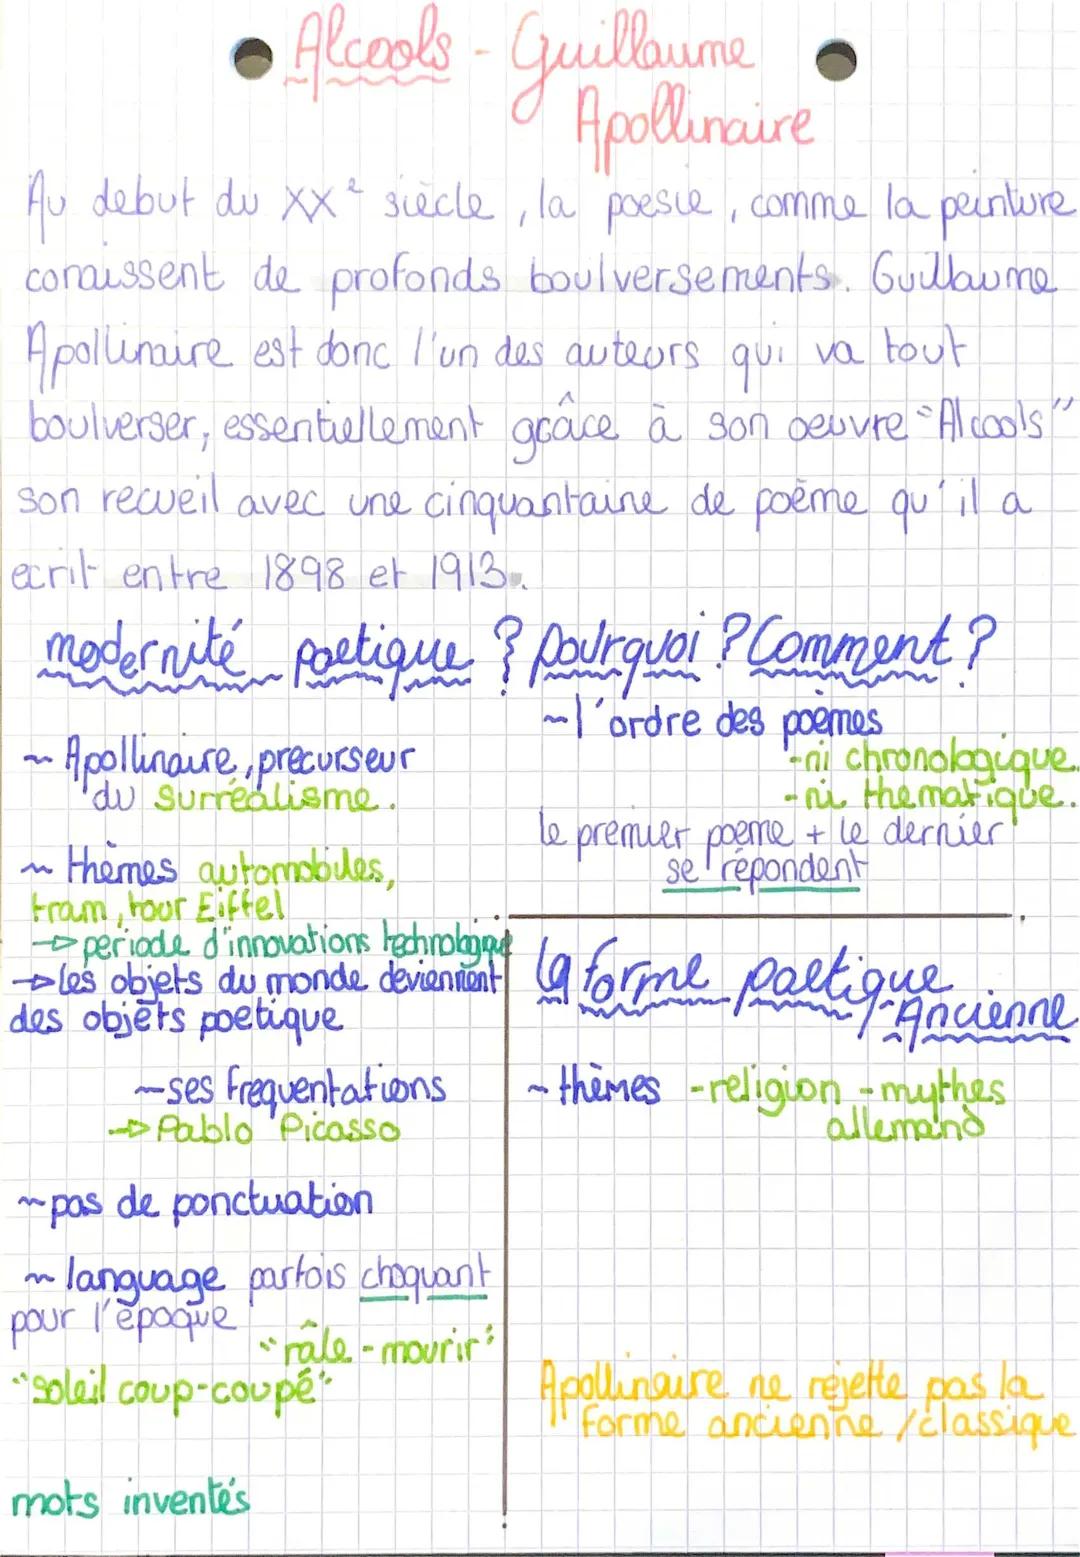 Alcools - Guillaume
Apollinaire
Au debut du XXe siècle, la poesie, comme la peinture
conaissent de profonds boulversements. Guillaume
Apollinaire est donc l'un des auteurs qui va tout
boulverser, essentiellement grâce à son oeuvre "Alcools"
son recueil avec une cinquantaine de poème qu'il a
ecrit entre 1898 et 1913.
modernité poetique ? Pourquoi ? Comment ?
~ Apollinaire, precurseur
du surréalisme.
~ thèmes automobiles,
tram, tour Eiffel
→ periode d'innovations technologique
→ les objets du monde deviennent
des objets poetique
~ ses frequentations
→ Pablo Picasso
~ pas de ponctuation
~ language parfois choquant
pour l'epoque
"râle - mourir"
"soleil coup-coupé"
mots inventés
~ l'ordre des poèmes
- ni chronologique.
- ni thematique.
le premier poeme + le dernier
se répondent
la forme poetique
- Ancienne
~ thèmes - religion - mythes
allemand
Apollinaire ne rejette pas la
forme ancienne / classique